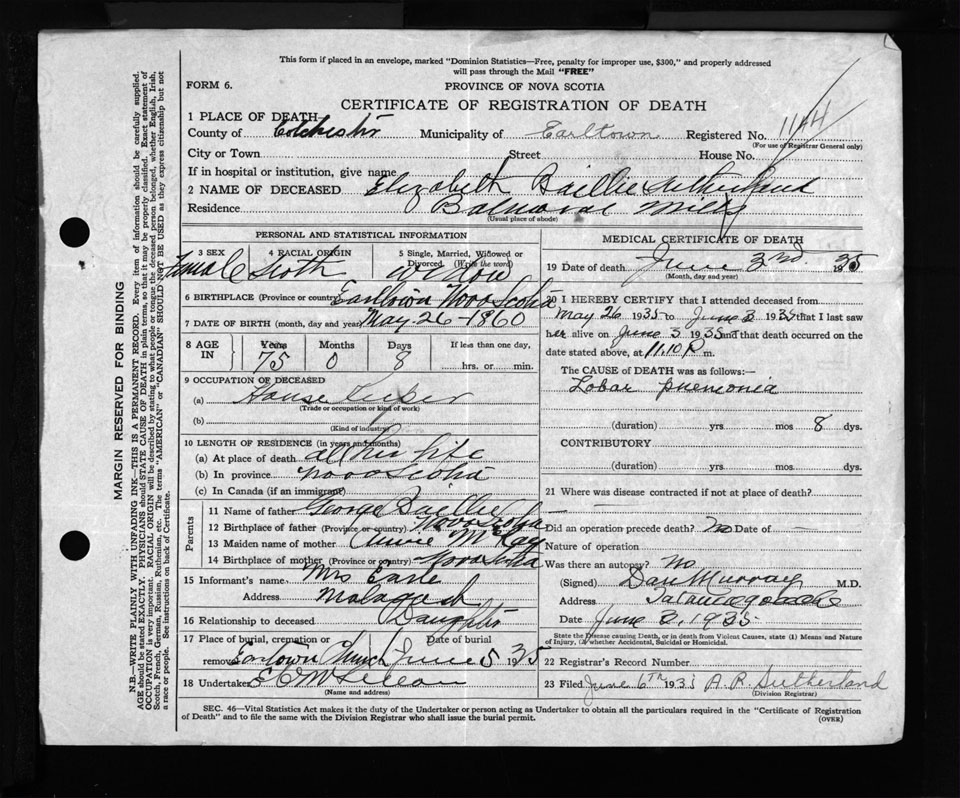 This form if placed in an envelope, marked "Dominion Statistics—Free, penalty for improper use, $300," and properly addressed
will pass through the Mail "FREE"
FORM 6.
PROVINCE OF NOVA SCOTIA
CERTIFICATE OF REGISTRATION OF DEATH
1 PLACE OF DEATH—
County of Colchester Municipality of Earltown Registered No. 1144
(For use of Registrar General only)
City or Town Street House No.
If in hospital or institution, give name
2 NAME OF DECEASED Elizabeth Baillie Sutherland
Residence Balmoral Mills
(Usual place of abode)
PERSONAL AND STATISTICAL INFORMATION
3 SEX 4 RACIAL ORIGIN 5 Single, Married, Widowed or Divorced (Write the word)
Female Scotch Widow
6 BIRTHPLACE (Province or country) Earltown Nova Scotia
7 DATE OF BIRTH (month, day and year) May 26-1860
8 AGE IN Years Months Days If less than one day,
75 0 8 hrs. or min.
9 OCCUPATION OF DECEASED
(a) House Keeper
(Trade or occupation or kind of work)
(b)
(Kind of industry)
10 LENGTH OF RESIDENCE (in years and months)
(a) At place of death all her life
(b) In province Nova Scotia
(c) In Canada (if an immigrant)
Parents
11 Name of father George Baillie
12 Birthplace of father (Province or country) Nova Scotia
13 Maiden name of mother McKay
14 Birthplace of mother (Province or country) Nova Scotia
15 Informant's name Mrs Earle
Address Malagash
16 Relationship to deceased Daughter
17 Place of burial, cremation or removal Date of burial
Earltown Church June 5 1935
18 Undertaker
(Name and address)
MEDICAL CERTIFICATE OF DEATH
19 Date of death June 3rd 1935
(Month, day and year)
20 I HEREBY CERTIFY that I attended deceased from
May 26 1935 to June 3 1935 that I last saw
her alive on June 3 1935 and that death occurred on the
date stated above, at 11.10 P m.
The CAUSE OF DEATH was as follows:—
Lobar pneumonia
(duration) yrs mos 8 dys.
CONTRIBUTORY
(duration) yrs mos dys.
21 Where was disease contracted if not at place of death?
Did an operation precede death? No Date of —
Nature of operation
Was there an autopsy? No
(Signed) Dan Murray M.D.
Address Tatamagouche
Date June 3, 1935
State the Disease causing Death, or in death from Violent Causes, state (1) Means and Nature
of Injury, (2) whether Accidental, Suicidal or Homicidal.
22 Registrar's Record Number
23 Filed June 6th 1935 A. R. Sutherland
(Division Registrar)
SEC. 46—Vital Statistics Act makes it the duty of the Undertaker or person acting as Undertaker to obtain all the particulars required in the "Certificate of Registration
of Death" and to file the same with the Division Registrar who shall issue the burial permit.
(OVER)
MARGIN RESERVED FOR BINDING
N.B.—WRITE PLAINLY WITH UNFADING INK—THIS IS A PERMANENT RECORD. Every item of information should be carefully supplied.
AGE should be stated EXACTLY. PHYSICIANS should STATE CAUSE OF DEATH in plain terms, so that it may be properly classified. Exact statement of
OCCUPATION is very important. RACIAL ORIGIN will be described by stating to what people or tongue the deceased person belonged, whether English, Irish,
Scotch, French, German, Russian, Ruthenian, etc. The terms "AMERICAN" or "CANADIAN" SHOULD NOT BE USED as they express citizenship but not
a race or people. See instructions on back of Certificate.